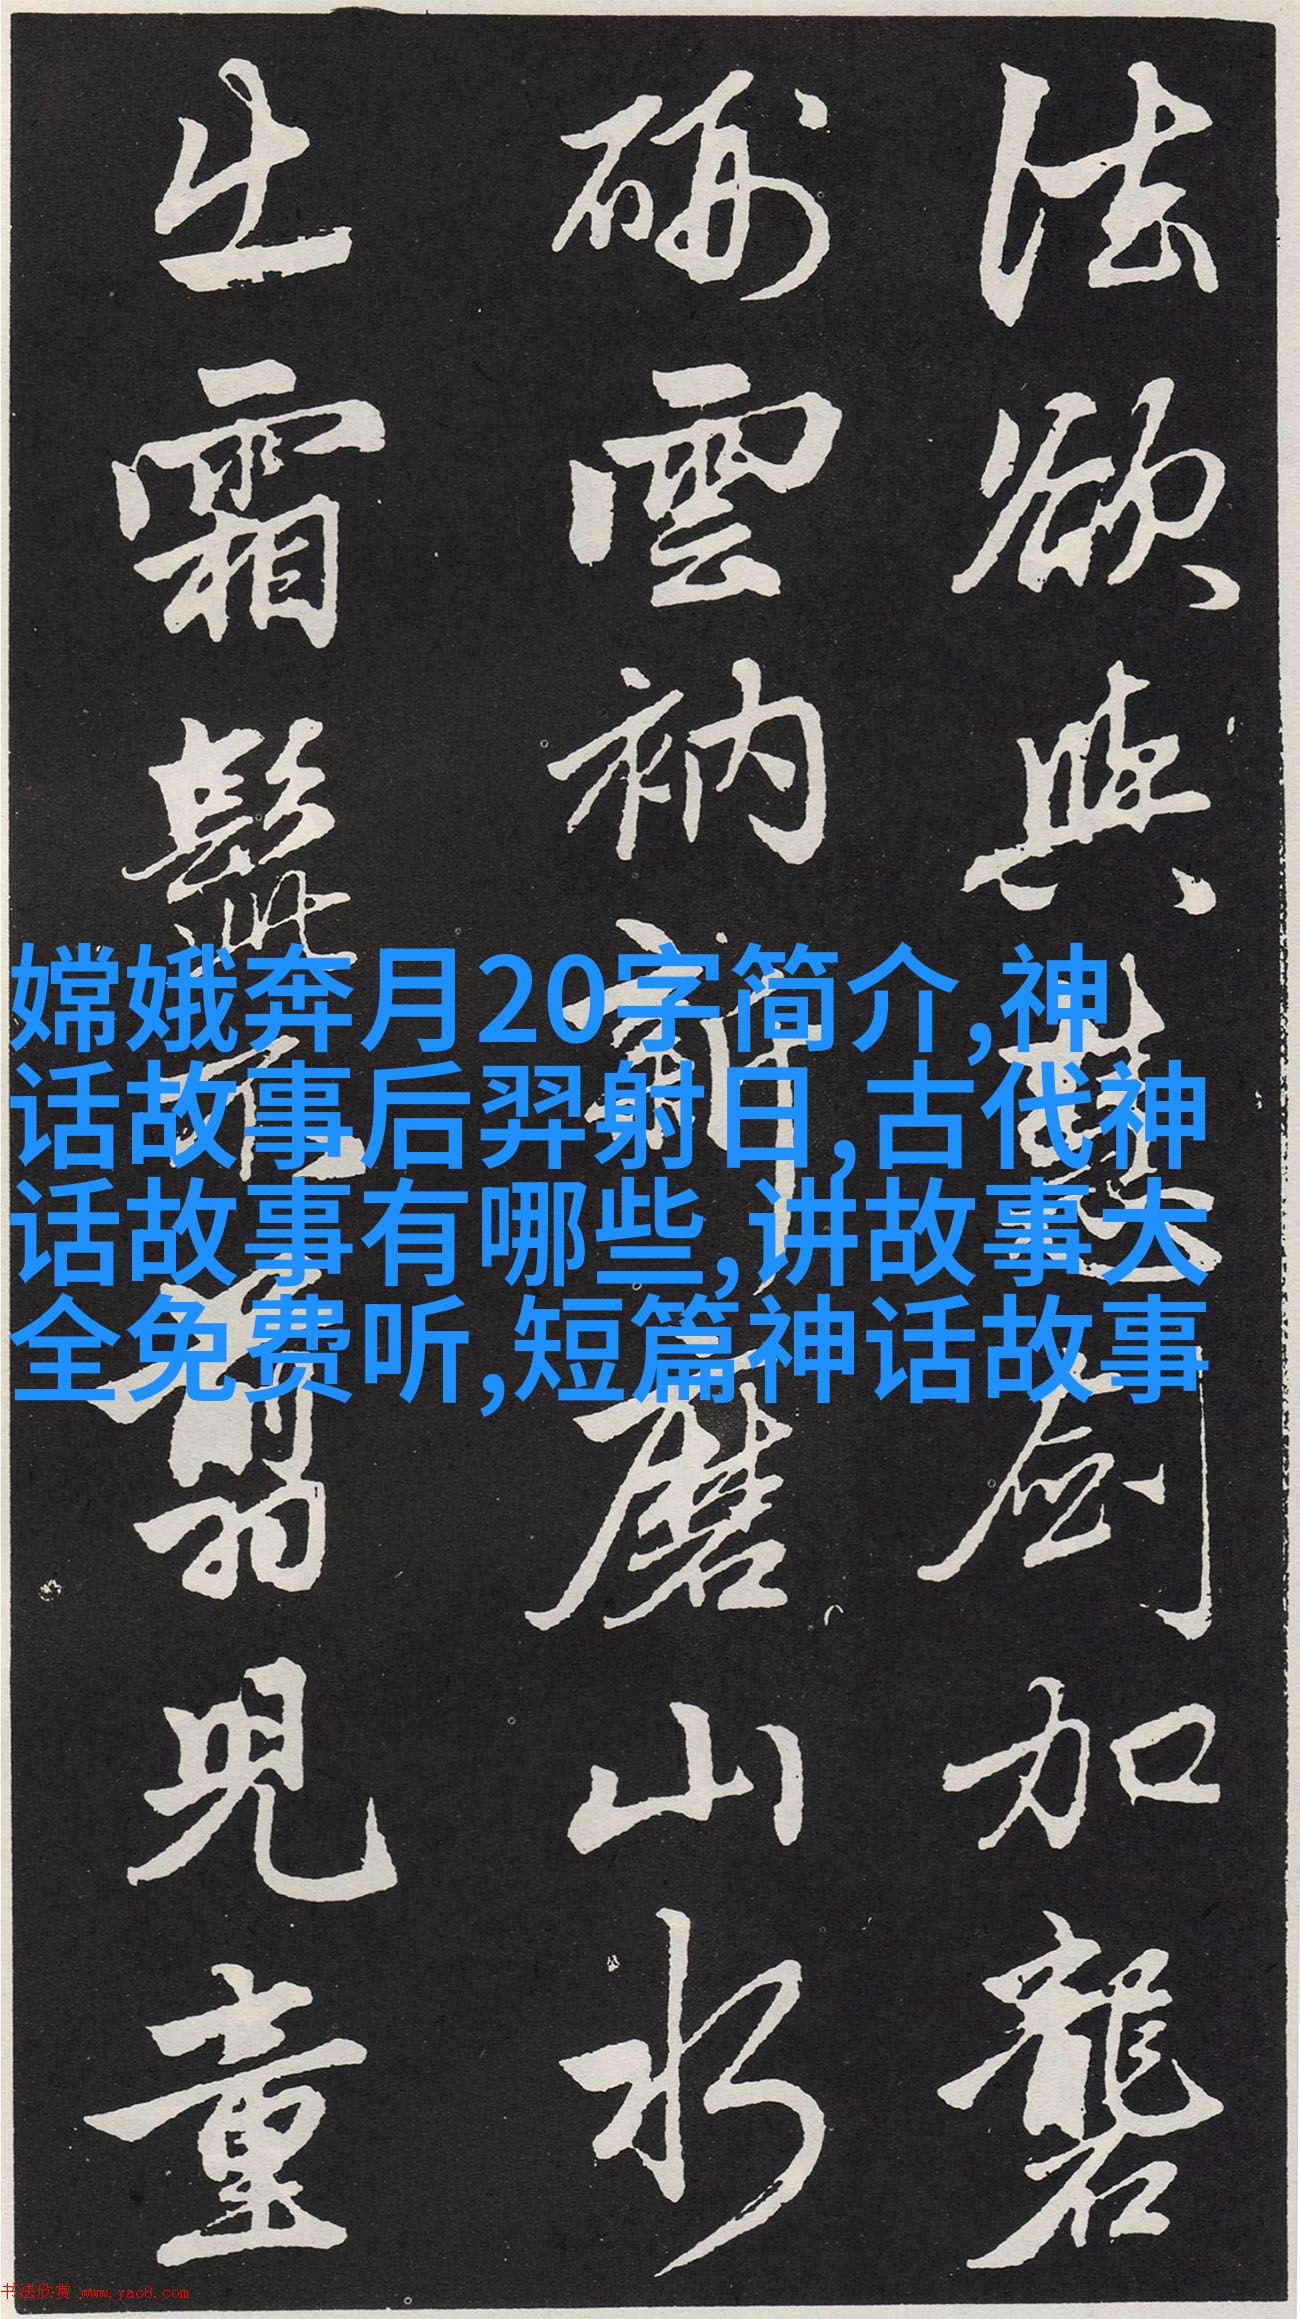 法欲與慧劍加礱
硎雲衲新磨山水
出霜髭翦兒童
嫦娥奔月20字简介,神
话故事后羿射日,古代神
话故事有哪些,讲故事大
全免费听,短篇神话故事
书法欣赏 www.yac8.com